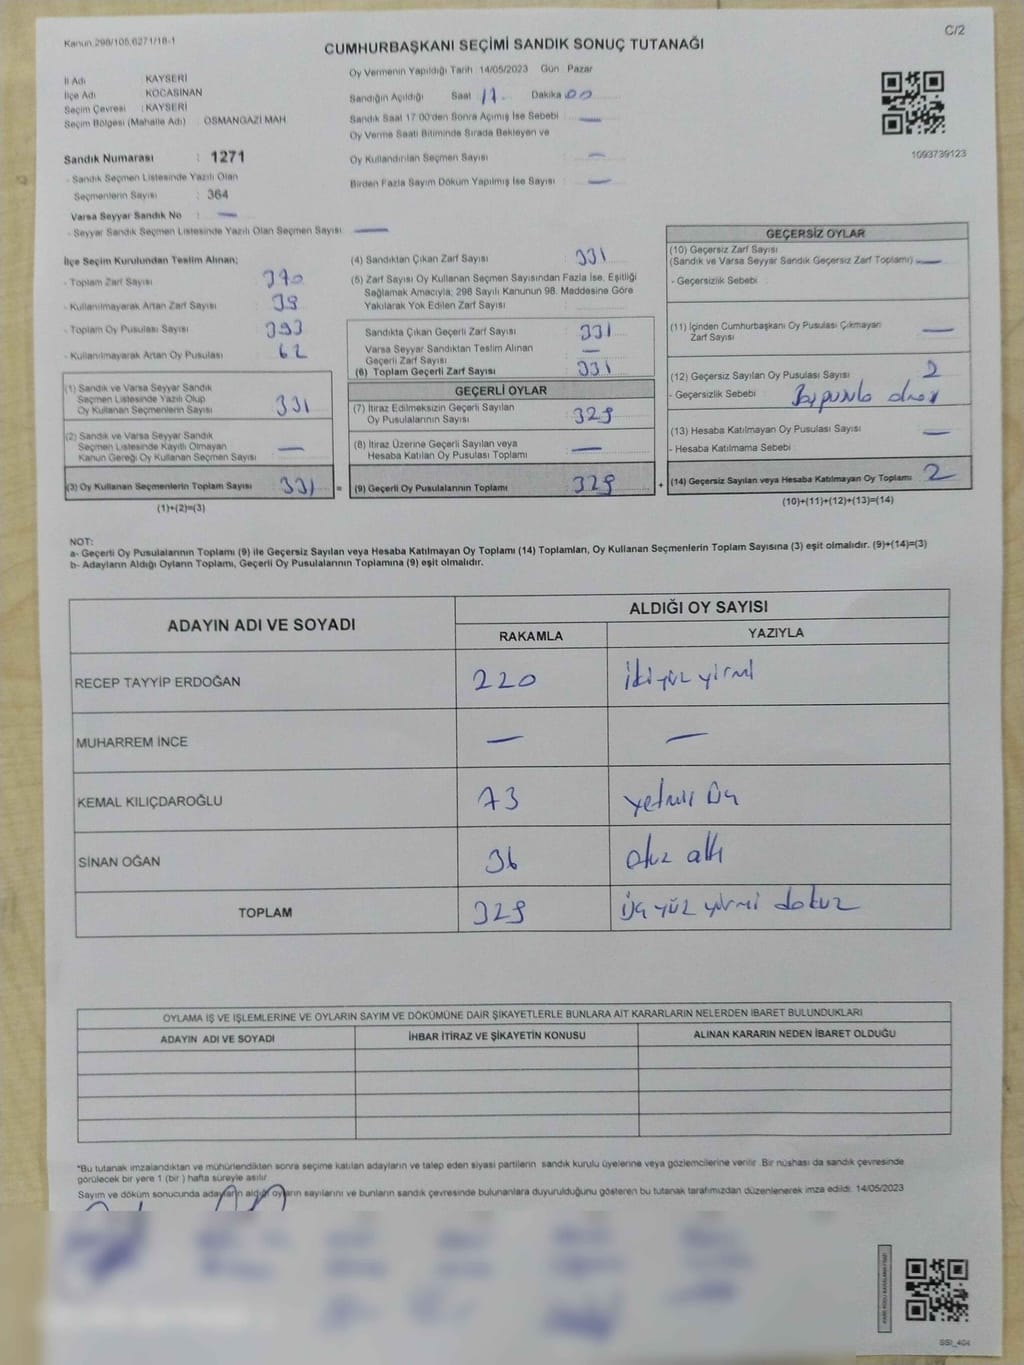 Kanun 298/105,6271/18-1
C/2
CUMHURBAŞKANI SEÇİMİ SANDIK SONUÇ TUTANAĞI
İl Adı KAYSERİ
İlçe Adı KOCASİNAN
Seçim Çevresi : KAYSERİ
Seçim Bölgesi (Mahalle Adı) : OSMANGAZİ MAH
Sandık Numarası : 1271
- Sandık Seçmen Listesinde Yazılı Olan
Seçmenlerin Sayısı : 364
Varsa Seyyar Sandık No : —
- Seyyar Sandık Seçmen Listesinde Yazılı Olan Seçmen Sayısı : —
Oy Vermenin Yapıldığı Tarih 14/05/2023 Gün Pazar
Sandığın Açıldığı Saat 17. Dakika 00
Sandık Saat 17:00'den Sonra Açımış İse Sebebi : —
Oy Verme Saati Bitiminde Sırada Bekleyen ve
Oy Kullandırılan Seçmen Sayısı : —
Birden Fazla Sayım Döküm Yapılmış İse Sayısı : —
1093739123
İlçe Seçim Kurulundan Teslim Alınan;
- Toplam Zarf Sayısı : 370
- Kullanılmayarak Artan Zarf Sayısı : 39
- Toplam Oy Pusulası Sayısı : 393
- Kullanılmayarak Artan Oy Pusulası : 62
(1) Sandık ve Varsa Seyyar Sandık
Seçmen Listesinde Yazılı Olup
Oy Kullanan Seçmenlerin Sayısı : 331
(2) Sandık ve Varsa Seyyar Sandık
Seçmen Listesinde Kayıtlı Olmayan
Kanun Gereği Oy Kullanan Seçmen Sayısı : —
(3) Oy Kullanan Seçmenlerin Toplam Sayısı : 331 =
(1)+(2)=(3)
(4) Sandıktan Çıkan Zarf Sayısı : 331
(5) Zarf Sayısı Oy Kullanan Seçmen Sayısından Fazla İse, Eşitliği
Sağlamak Amacıyla; 298 Sayılı Kanunun 98. Maddesine Göre
Yakılarak Yok Edilen Zarf Sayısı :
Sandıkta Çıkan Geçerli Zarf Sayısı : 331
Varsa Seyyar Sandıktan Teslim Alınan
Geçerli Zarf Sayısı : —
(6) Toplam Geçerli Zarf Sayısı : 331
GEÇERLİ OYLAR
(7) İtiraz Edilmeksizin Geçerli Sayılan
Oy Pusulalarının Sayısı : 329
(8) İtiraz Üzerine Geçerli Sayılan veya
Hesaba Katılan Oy Pusulası Toplamı : —
(9) Geçerli Oy Pusulalarının Toplamı : 329 +
GEÇERSİZ OYLAR
(10) Geçersiz Zarf Sayısı
(Sandık ve Varsa Seyyar Sandık Geçersiz Zarf Toplamı) : —
- Geçersizlik Sebebi :
(11) İçinden Cumhurbaşkanı Oy Pusulası Çıkmayan
Zarf Sayısı : —
(12) Geçersiz Sayılan Oy Pusulası Sayısı : 2
- Geçersizlik Sebebi :
(13) Hesaba Katılmayan Oy Pusulası Sayısı : —
- Hesaba Katılmama Sebebi :
(14) Geçersiz Sayılan veya Hesaba Katılmayan Oy Toplamı : 2
(10)+(11)+(12)+(13)=(14)
NOT:
a- Geçerli Oy Pusulalarının Toplamı (9) ile Geçersiz Sayılan veya Hesaba Katılmayan Oy Toplamı (14) Toplamları, Oy Kullanan Seçmenlerin Toplam Sayısına (3) eşit olmalıdır. (9)+(14)=(3)
b- Adayların Aldığı Oyların Toplamı, Geçerli Oy Pusulalarının Toplamına (9) eşit olmalıdır.
ADAYIN ADI VE SOYADI
ALDIĞI OY SAYISI
RAKAMLA YAZIYLA
RECEP TAYYİP ERDOĞAN 220 iki yüz yirmi
MUHARREM İNCE — —
KEMAL KILIÇDAROĞLU 73 yetmiş üç
SİNAN OĞAN 36 otuz altı
TOPLAM 329 üç yüz yirmi dokuz
OYLAMA İŞ VE İŞLEMLERİNE VE OYLARIN SAYIM VE DÖKÜMÜNE DAİR ŞİKAYETLERLE BUNLARA AİT KARARLARIN NELERDEN İBARET BULUNDUKLARI
ADAYIN ADI VE SOYADI İHBAR İTİRAZ VE ŞİKAYETİN KONUSU ALINAN KARARIN NEDEN İBARET OLDUĞU
*Bu tutanak imzalandıktan ve mühürlendikten sonra seçime katılan adayların ve talep eden siyasi partilerin sandık kurulu üyelerine veya gözlemcilerine verilir. Bir nüshası da sandık çevresinde
görülecek bir yere 1 (bir) hafta süreyle asılır
Sayım ve döküm sonucunda adayların aldığı oyların sayılarını ve bunların sandık çevresinde bulunanlara duyurulduğunu gösteren bu tutanak tarafımızdan düzenlenerek imza edildi. 14/05/2023
SSI_404